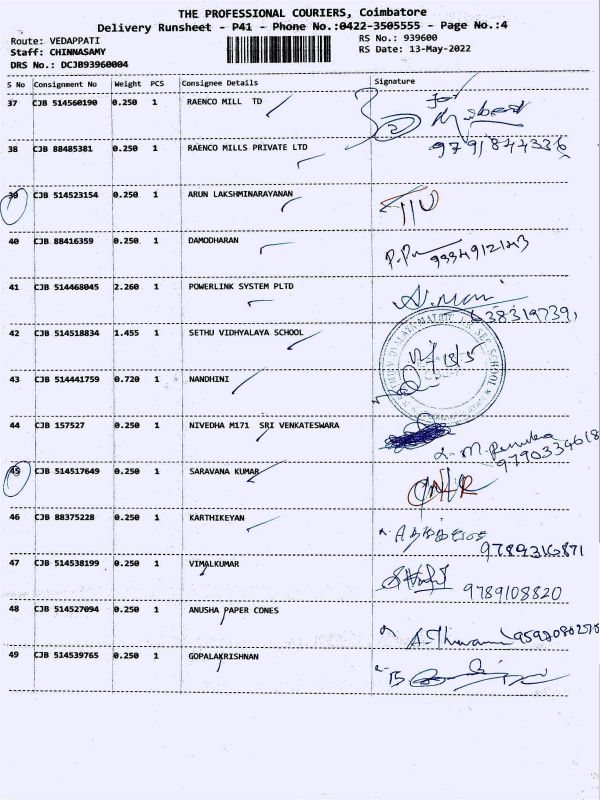 THE PROFESSIONAL COURIERS, Coimbatore
Delivery Runsheet - P41 - Phone No.:0422-3505555 - Page No.:4
Route: VEDAPPATI
RS No.: 939600
Staff: CHINNASAMY
RS Date: 13-May-2022
DRS No.: DCJB93960004
S No Consignment No Weight PCS Consignee Details Signature
37 CJB 514560190 0.250 1 RAENCO MILL TD for
38 CJB 88485381 0.250 1 RAENCO MILLS PRIVATE LTD 9791844336
39 CJB 514523154 0.250 1 ARUN LAKSHMINARAYANAN
40 CJB 88416359 0.250 1 DAMODHARAN
41 CJB 514468045 2.260 1 POWERLINK SYSTEM PLTD
42 CJB 514518834 1.455 1 SETHU VIDHYALAYA SCHOOL
43 CJB 514441759 0.720 1 NANDHINI
44 CJB 157527 0.250 1 NIVEDHA M171 SRI VENKATESWARA
45 CJB 514517649 0.250 1 SARAVANA KUMAR
46 CJB 88375228 0.250 1 KARTHIKEYAN 9789316871
47 CJB 514538199 0.250 1 VIMALKUMAR 9789108820
48 CJB 514527094 0.250 1 ANUSHA PAPER CONES
49 CJB 514539765 0.250 1 GOPALAKRISHNAN